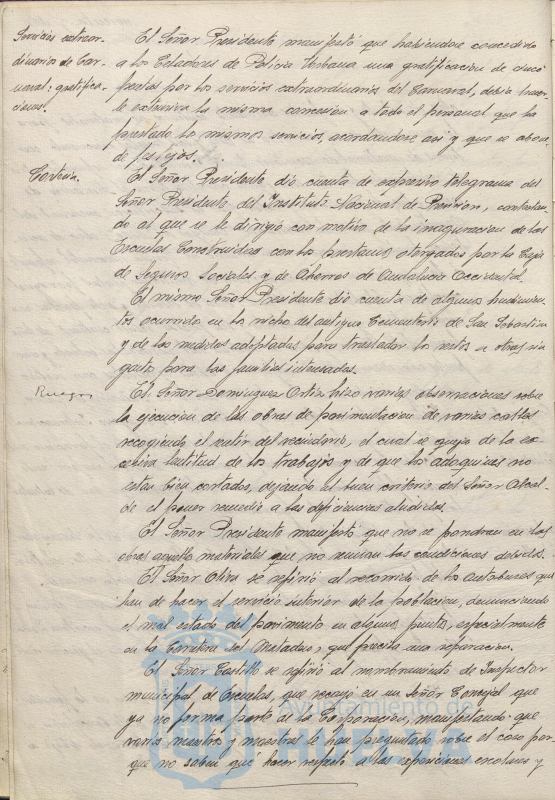 Servicios extraor-
dinarios de Car-
naval: gratifica-
ciones.
El Señor Presidente manifestó que habiendose concedido
a los Celadores de Policia Urbana una gratificación de cinco
pesetas por los servicios extraordinarios del Carnaval, debia hacer-
se extensiva la misma concesion a todo el personal que ha
prestado los mismos servicios, acordandose asi y que se abone
de festejos.
Cortesia.
El Señor Presidente dio cuenta de expresivo telegrama del
Señor Presidente del Instituto Nacional de Prevision, contestan-
do al que se le dirigió con motivo de la inauguracion de las
Escuelas Construidas con los prestamos otorgados por la Caja
de Seguros Sociales y de Ahorros de Andalucia Occidental.
El mismo Señor Presidente dio cuenta de algunos hundimien-
tos ocurridos en los nichos del antiguo Cementerio de San Sebastian
y de las medidas adoptadas para trasladar los restos a otros sin
gasto para las familias interesadas.
Ruegos
El Señor Dominguez Ortiz hizo varias observaciones sobre
la ejecucion de las obras de pavimentacion de varias calles
recogiendo el sentir del vecindario, el cual se queja de la ex-
cesiva lentitud de los trabajos y de que los adoquines no
estan bien cortados, dejando al buen criterio del Señor Alcal-
de el poner remedio a las deficiencias aludidas.
El Señor Presidente manifestó que no se pondran en las
obras aquellos materiales que no reunan las condiciones debidas.
El Señor Oliva se refirió al recorrido de los autobuses que
han de hacer el servicio interior de la poblacion, denunciando
el mal estado del pavimento en algunos puntos, especialmente
en la Carretera del Matadero, que precisa una reparacion.
El Señor Castillo se refirió al nombramiento de Inspector
municipal de Escuelas, que recayó en un Señor Concejal que
ya no forma parte de la Corporacion, manifestando que
varios maestros y maestras le han preguntado sobre el caso por-
que no saben que hacer respecto a las exposiciones escolares y
Ayuntamiento de
HUELVA